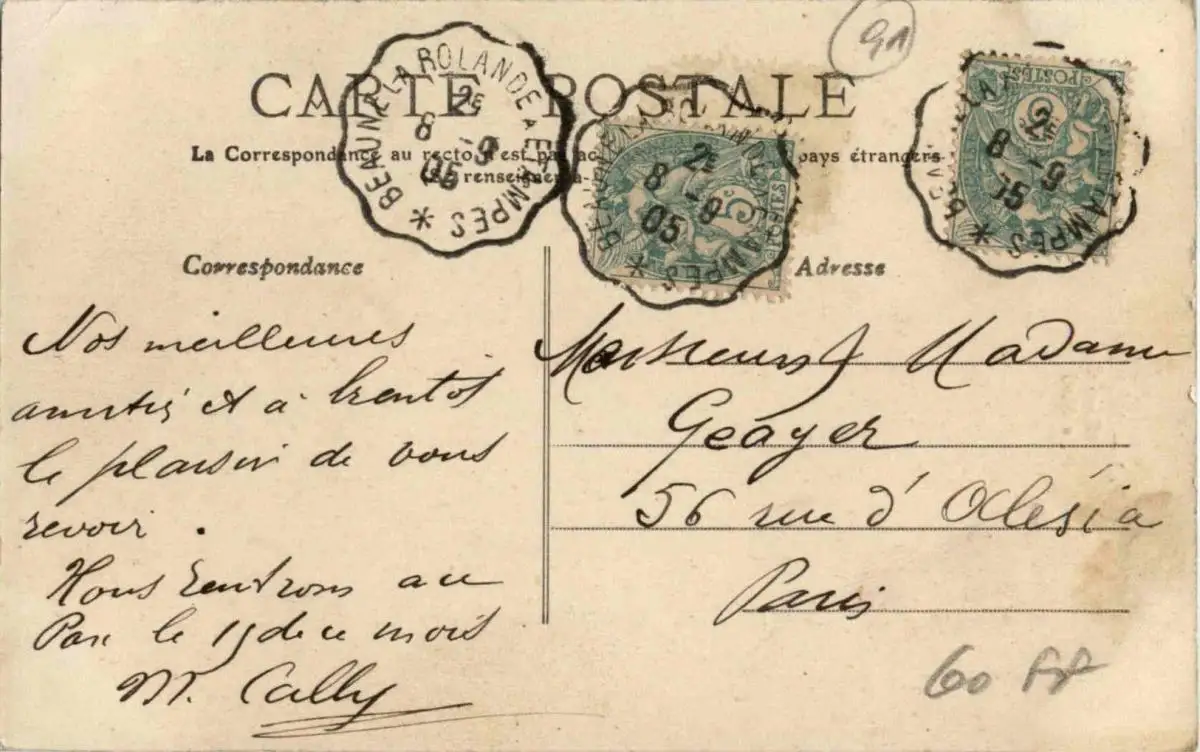 91
CARTE POSTALE
BEAUNE LA ROLANDE A ETAMPES *
2E
8 -9
05
La Correspondance au recto n'est pas pays étrangers
(Se renseigner à
BEAUNE LA ROLANDE A ETAMPES *
2E
8 -9
05
5c
POSTES
2E
8 -9
05
ETAMPES *
5
POSTES
Correspondance
Nos meilleures
amitiés et à bientôt
le plaisir de vous
revoir.
Nous rentrons au
le 15 de ce mois
M. Cally
Adresse
Monsieur & Madame
Geayer
56 rue d'Alésia
Paris
60 FF